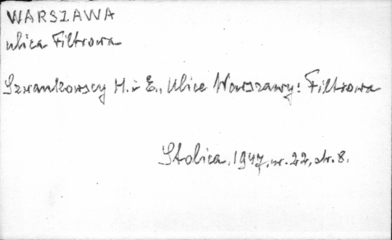 WARSZAWA
ulica Filtrowa
Szwankowscy H. i E., Ulice Warszawy: Filtrowa
Stolica, 1947, nr. 22, str. 8.